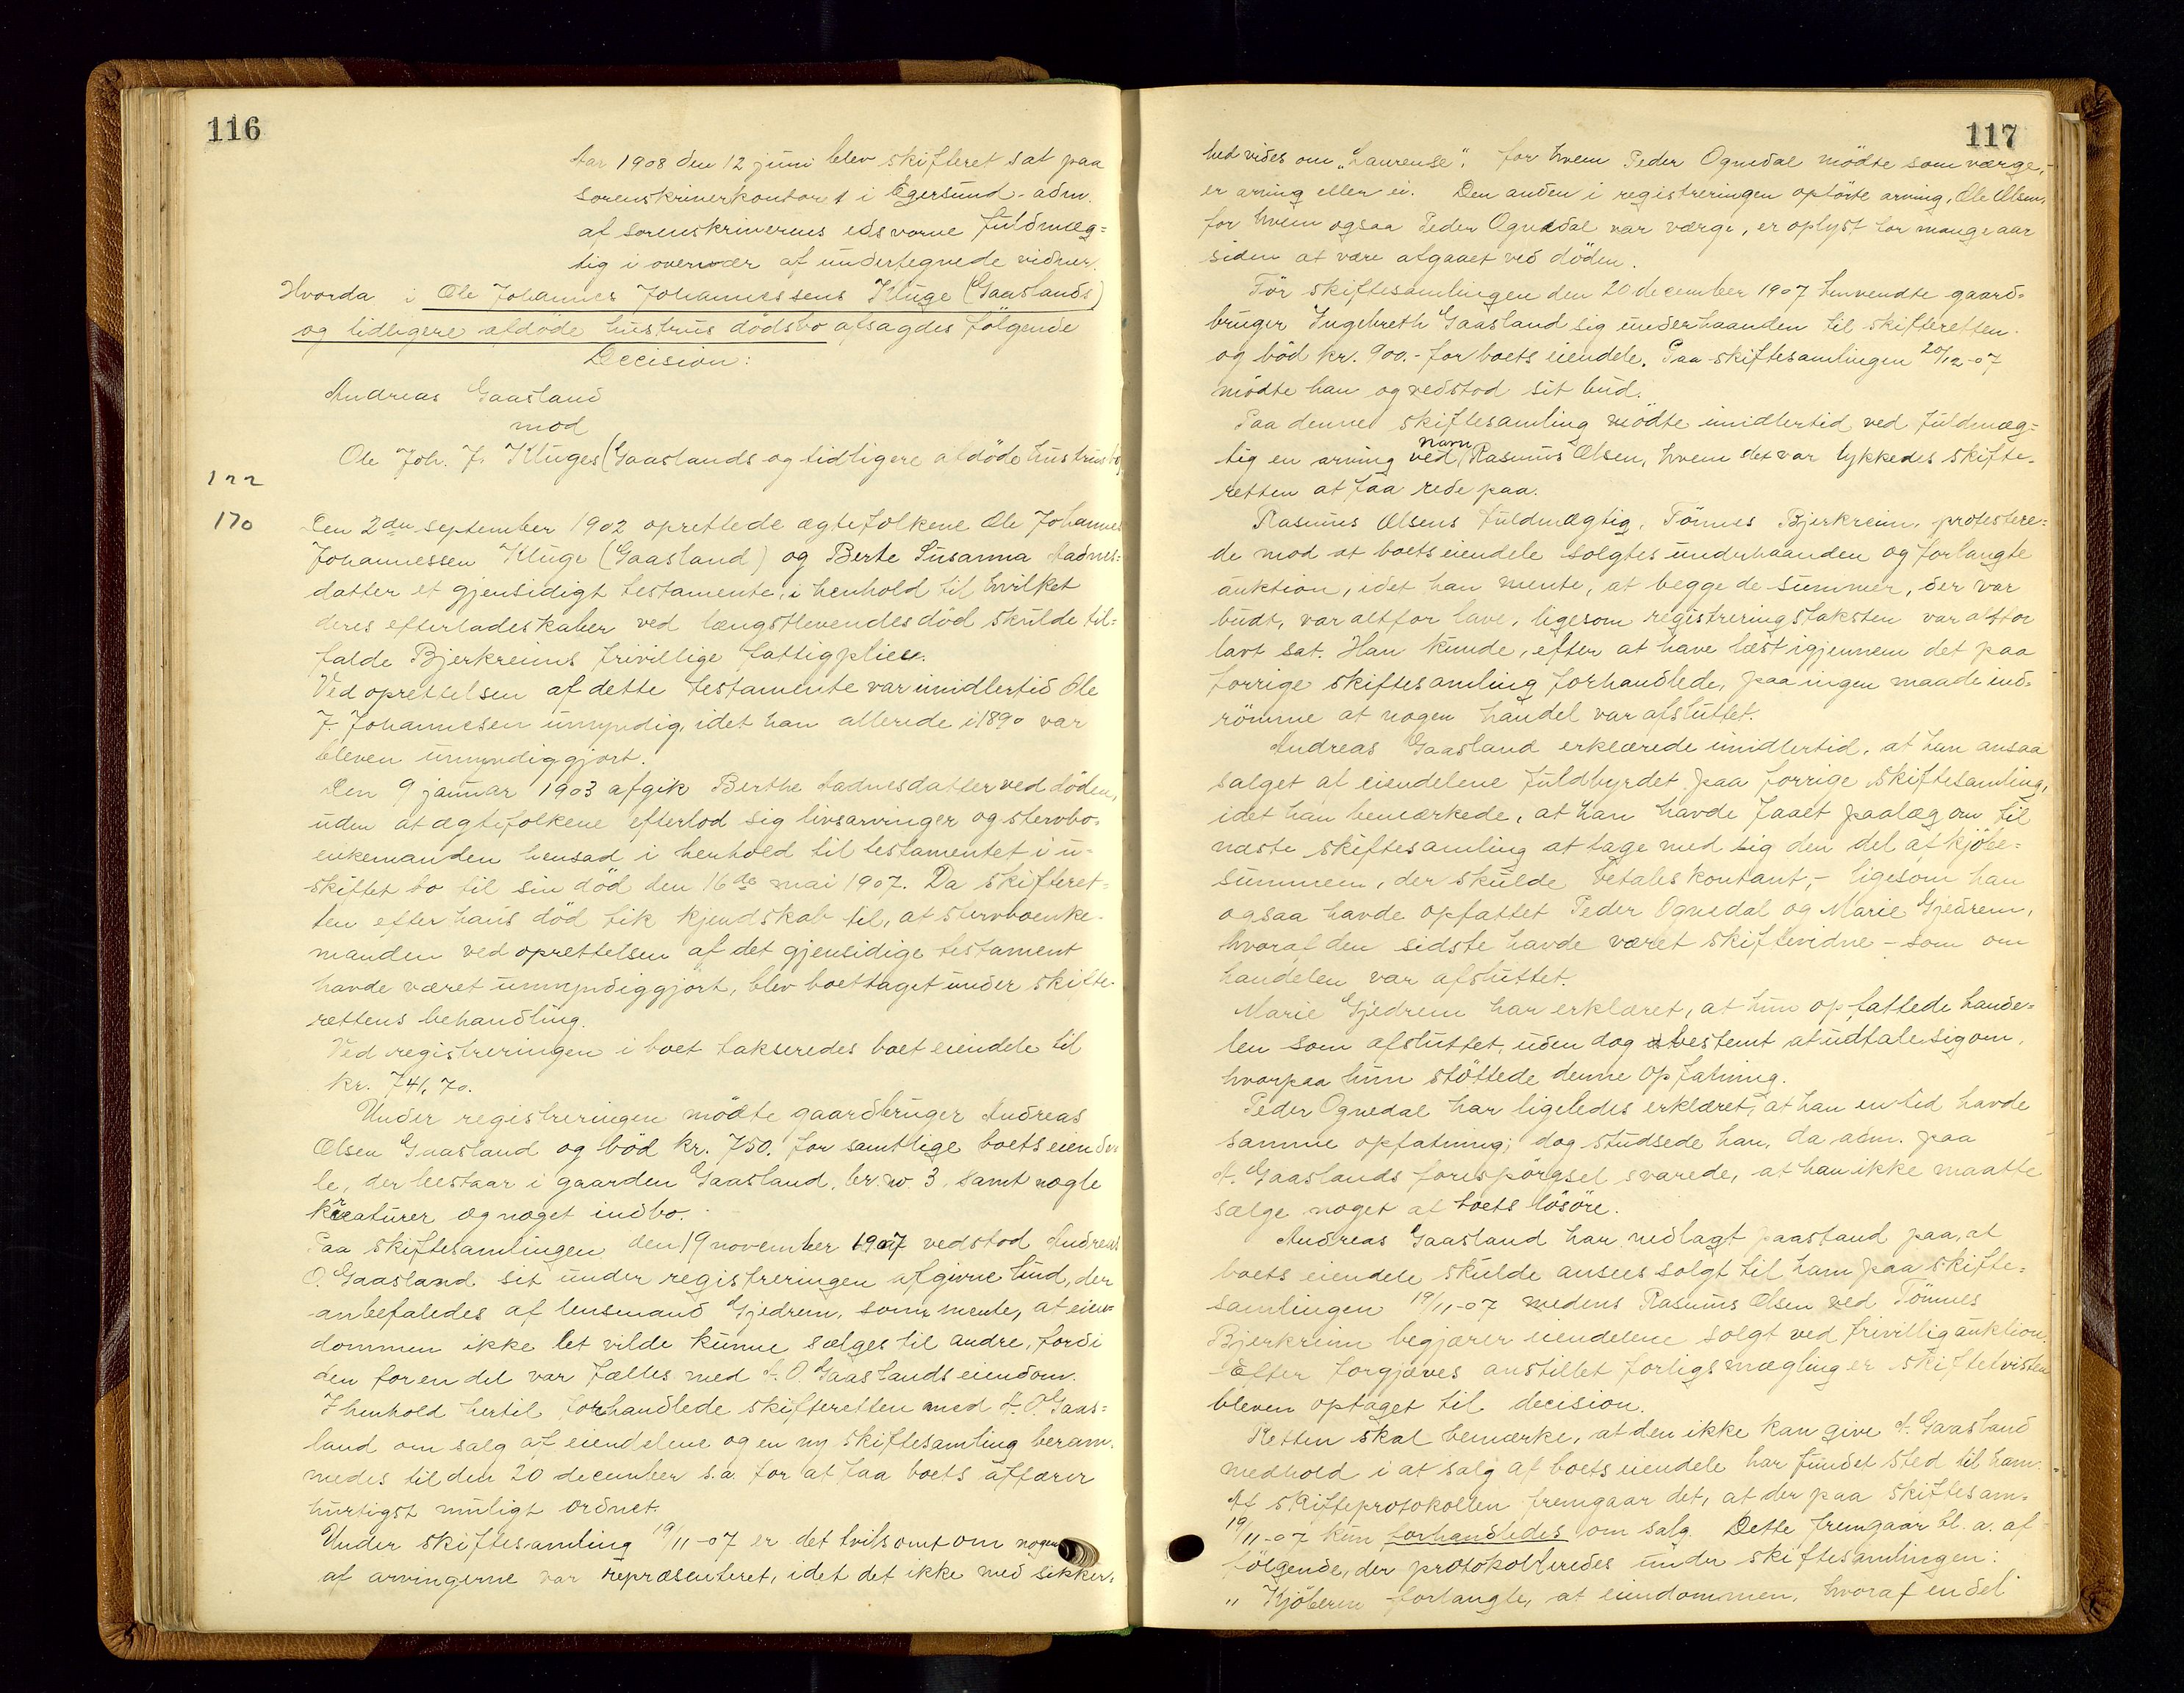 116
Aar 1908 den 12 juni blev skifteret sat paa
sorenskriverkontoret i Egersund - adm.
af sorenskriverens edsvorne fuldmæg=
tig i overvær af undertegnede vidner.
Hvorda i Ole Johannes Johannessens Kluge (Gaaslands)
og tidligere afdöde hustrus dödsbo afsagdes fölgende
Decision:
Andreas Gaasland
mod
Ole Joh. J. Kluges (Gaaslands og tidligere afdöde hustrus bo
122
170
Den 2den september 1902 oprettede ægtefolkene Ole Johannes
Johannessen Kluge (Gaasland) og Berte Susanna Aadnes=
datter et gjensidigt testamente, i henhold til hvilket
deres efterladeskaber ved længstlevendes död skulde til=
falde Bjerkreims frivillige fattigpleie.
Ved oprettelsen af dette testamente var imidlertid Ole
J. Johannesen umyndig, idet han allerede i 1890 var
bleven umyndiggjort.
Den 9 januar 1903 afgik Berthe Aadnesdatter ved döden,
uden at ægtefolkene efterlod sig livsarvinger og stervbo=
enkemanden hensad i henhold til testamentet i u=
skiftet bo til sin död den 16de mai 1907. Da skifteret=
ten efter hans död fik kjendskab til, at stervboenke-
manden ved oprettelsen af det gjensidige testament
havde været umyndiggjort, blev boet taget under skifte-
rettens behandling.
Ved registreringen i boet takseredes boet eiendele til
kr. 741,70.
Under registreringen mödte gaardbruger Andreas
Olsen Gaasland og böd kr. 750. for samtlige boets eiende
le, der bestaar i gaarden Gaasland, br. no. 3. samt nogle
kreaturer og noget indbo.
Paa skiftesamlingen den 19 november 1907 vedstod Andreas
O. Gaasland sit under registreringen afgivne bud, der
anbefaledes af lensmand Gjedrem, som mente, at eien=
dommen ikke let vilde kunne sælges til andre, fordi
den for en del var fælles med A. O. Gaaslands eiendom.
I henhold hertil forhandlede skifteretten med A. O. Gaas=
land om salg af eiendelene og en ny skiftesamling beram=
medes til den 20 december s.a. for at faa boets affærer
hurtigst muligt ordnet.
Under skiftesamling 19/11-07 er det tvilsomt om nogen
af arvingerne var repræsenteret, idet det ikke med sikker=
117
hed vides om "Laurense", for hvem Peder Ognedal mödte som værge,
er arving eller ei. Den anden i registreringen opförte arving, Ole Olsen,
for hvem ogsaa Peder Ognedal var værge, er oplyst for mange aar
siden at være afgaaet ved döden.
För skiftesamlingen den 20 december 1907 henvendte gaard=
bruger Ingebreth Gaasland sig underhaanden til skifteretten
og böd kr. 900.- for boets eiendele. Paa skiftesamlingen 20/12-07
mödte han og vedstod sit bud.
Paa denne skiftesamling mödte imidlertid ved fuldmæg=
tig en arving ved navn Rasmus Olsen, hvem det var lykkedes skifte=
retten at faa rede paa.
Rasmus Olsens fuldmægtig, Tönnes Bjerkreim, protestere=
de mod at boets eiendele solgtes underhaanden og forlangte
auktion, idet han mente, at begge de summer, der var
budt, var altfor lave, ligesom registreringstaksten var altfor
lavt sat. Han kunde, efter at have læst igjennem det paa
forrige skiftesamling forhandlede, paa ingen maade ind=
römme at nogen handel var afsluttet.
Andreas Gaasland erklærede imidlertid, at han ansaa
salget af eiendelene fuldbyrdet paa forrige skiftesamling,
idet han bemærkede, at han havde faaet paalæg om til
næste skiftesamling at tage med sig den del af kjöbe=
summen, der skulde betales kontant, - ligesom han
ogsaa havde opfattet Peder Ognedal og Marie Gjedrem,
hvoraf den sidste havde været skiftevidne - som om
handelen var afsluttet.
Marie Gjedrem har erklæret, at hun opfattede hande=
len som afsluttet, uden dog bestemt at udtale sig om,
hvorpaa hun stöttede denne opfatning.
Peder Ognedal har ligeledes erklæret, at han en tid havde
samme opfatning; dog studsede han, da adm. paa
A. Gaaslands forespörgsel svarede, at han ikke maatte
sælge noget af boets lösöre.
Andreas Gaasland har nedlagt paastand paa, at
boets eiendele skulde ansees solgt til ham paa skifte=
samlingen 19/11-07 medens Rasmus Olsen ved Tönnes
Bjerkreim begjærer eiendelene solgt ved frivillig auktion.
Efter forgjæves anstillet forligsmægling er skiftetvisten
bleven optaget til decision.
Retten skal bemærke, at den ikke kan give A. Gaasland
medhold i at salg af boets eiendele har fundet sted til ham.
Af skifteprotokollen fremgaar det, at der paa skiftesam=
19/11-07 kun forhandledes om salg. Dette fremgaar bl. a. af
fölgende, der protokolleredes under skiftesamlingen:
" Kjöberen forlangte, at eiendommen, hvoraf en del